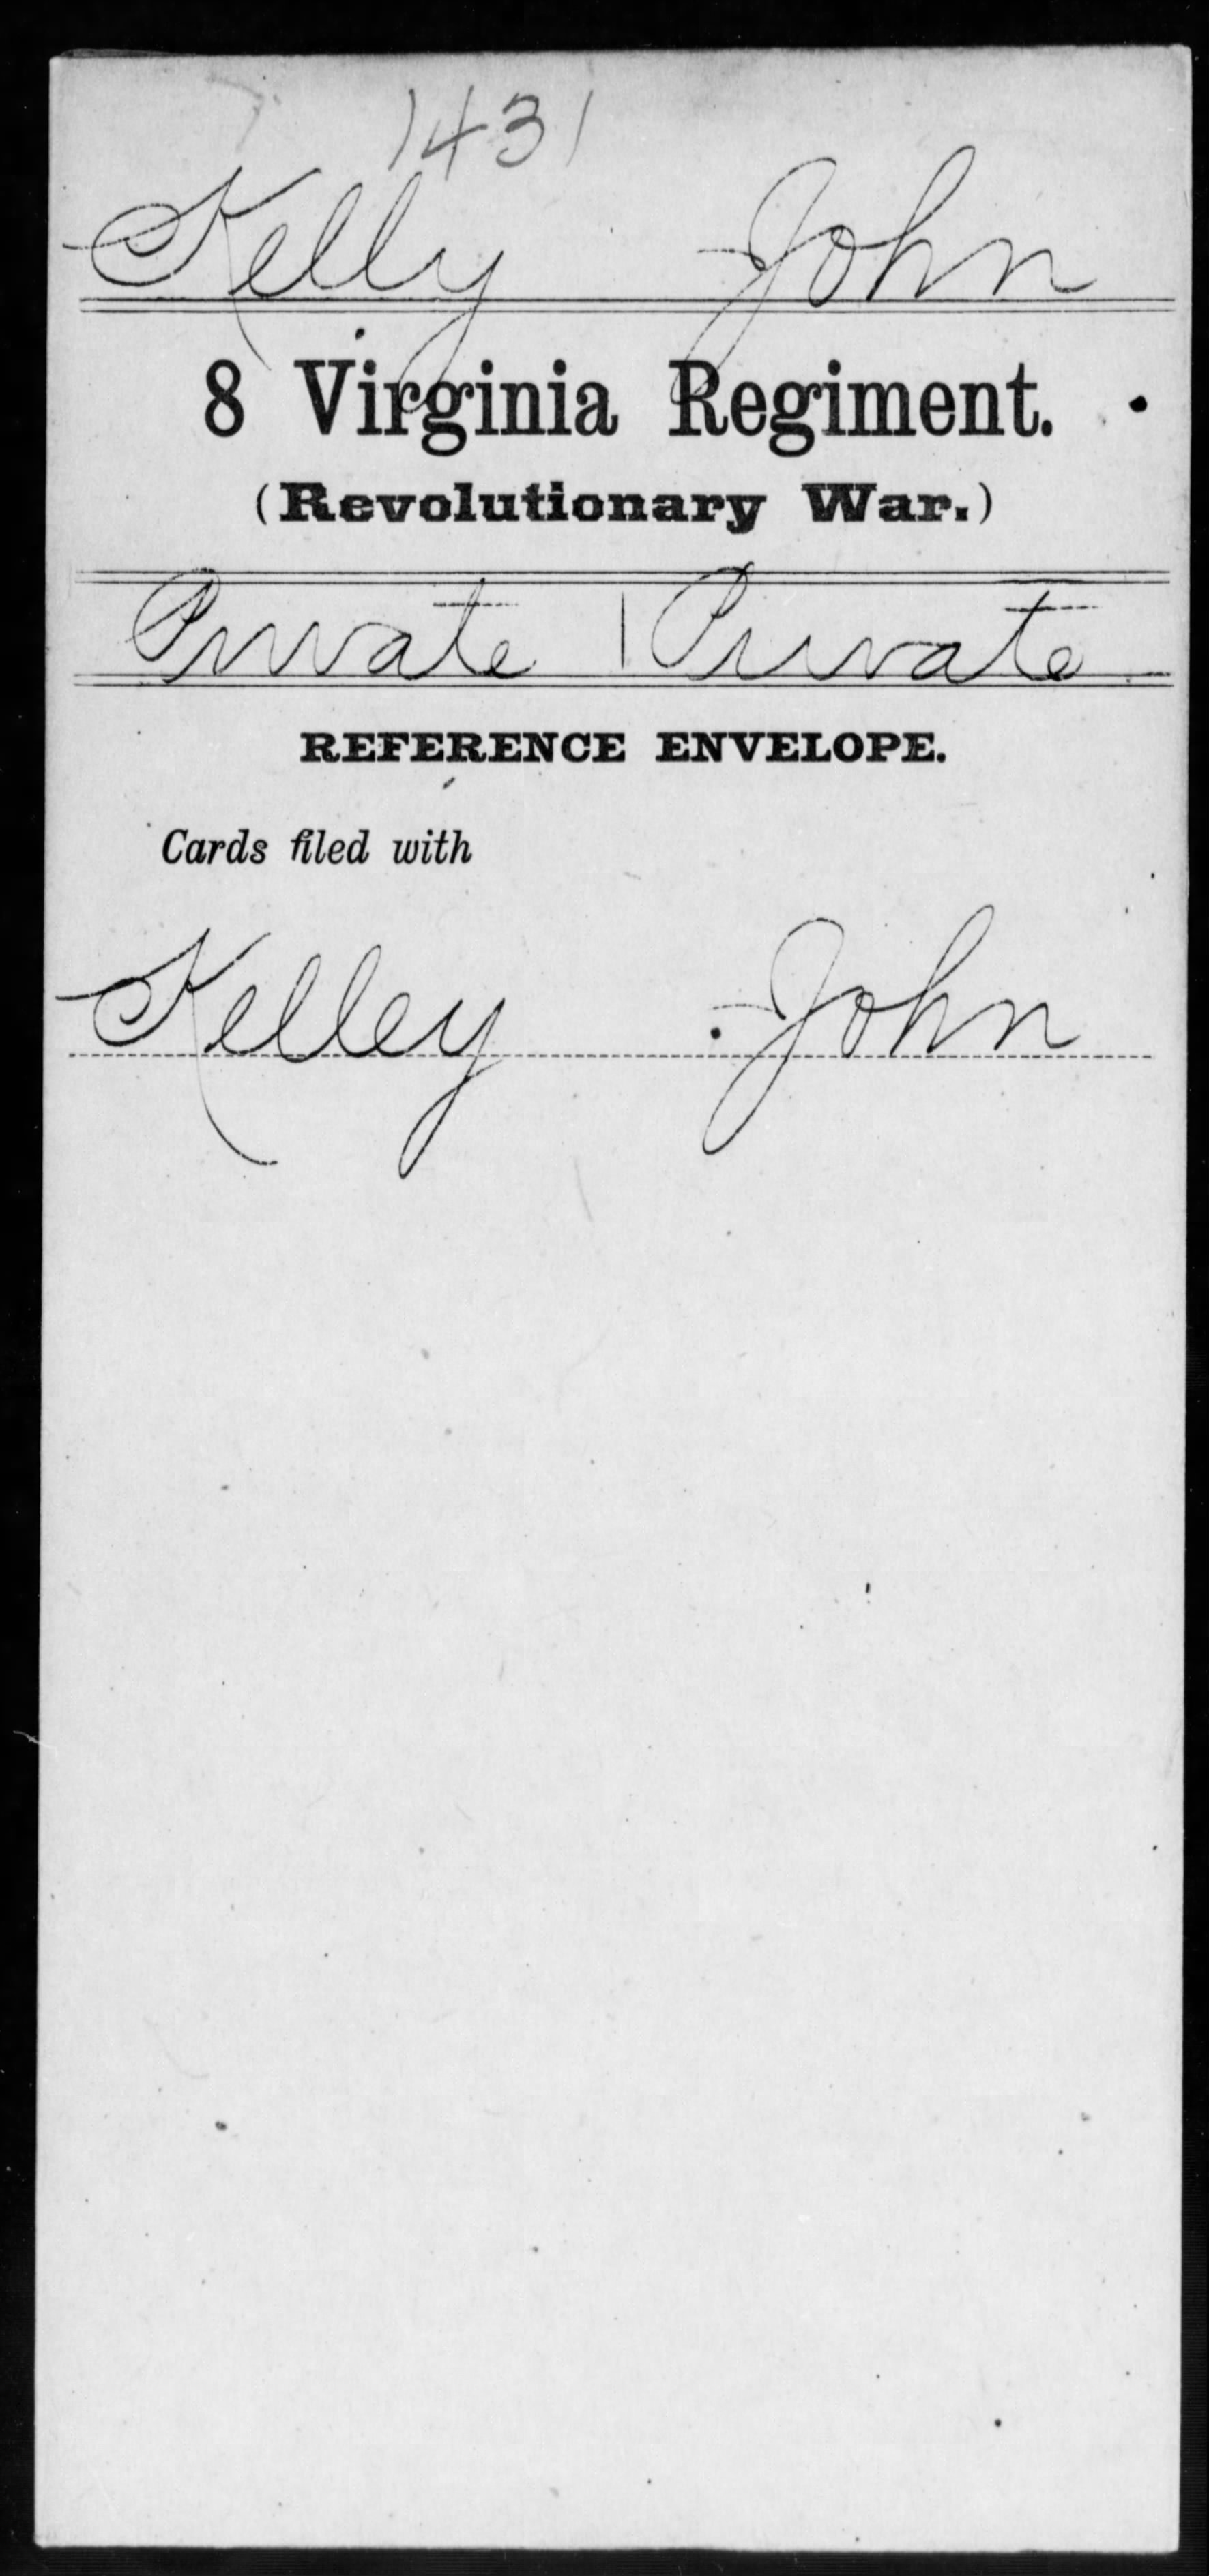 1431
Kelly John
8 Virginia Regiment.
(Revolutionary War.)
Private | Private
REFERENCE ENVELOPE.
Cards filed with
Kelley John